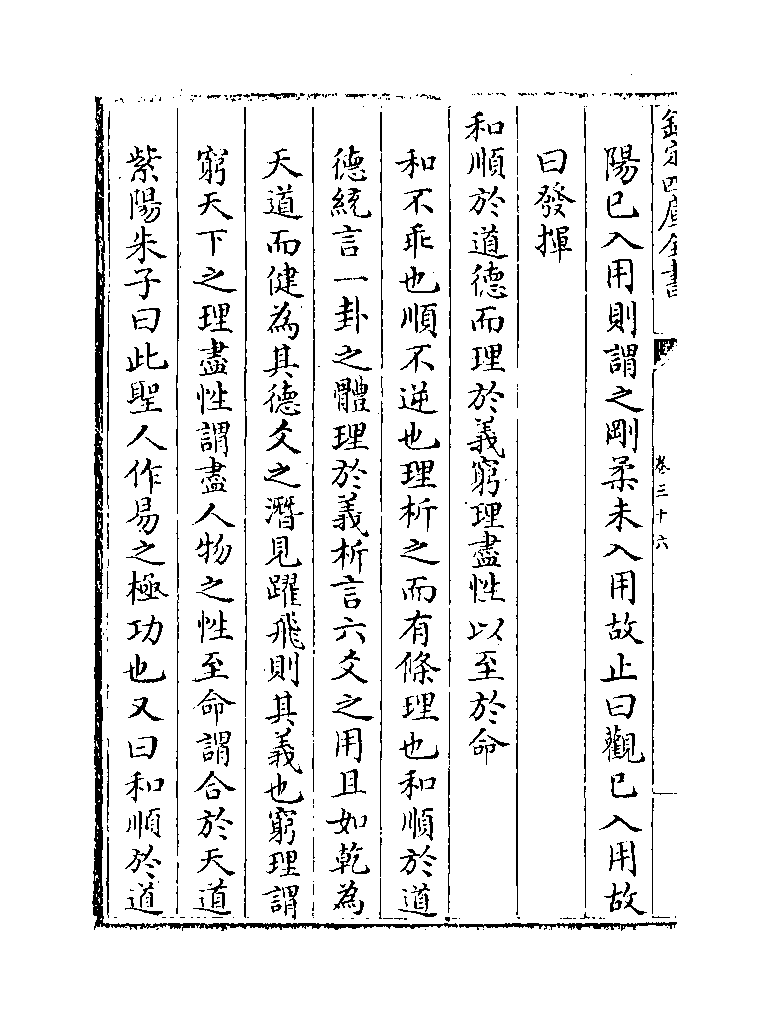 欽定四庫全書
卷三十六
陽已入用則謂之剛柔未入用故止曰觀已入用故
曰發揮
和順於道德而理於義窮理盡性以至於命
和不乖也順不逆也理析之而有條理也和順於道
德統言一卦之體理於義析言六爻之用且如乾為
天道而健為其德爻之潛見躍飛則其義也窮理謂
窮天下之理盡性謂盡人物之性至命謂合於天道
紫陽朱子曰此聖人作易之極功也又曰和順於道